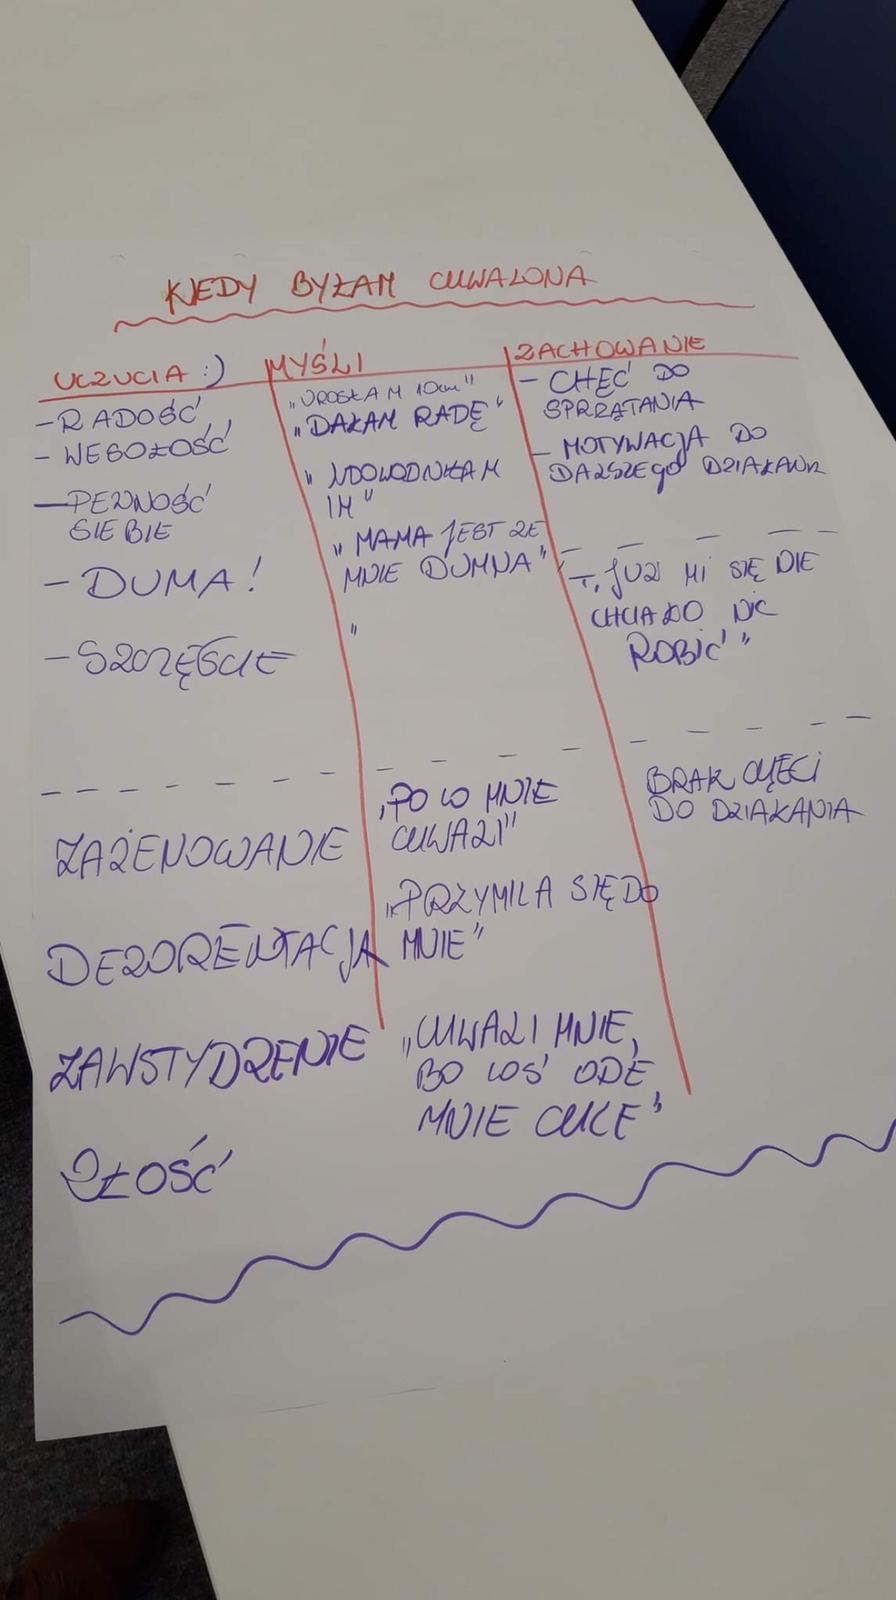 KIEDY BYŁAM CHWALONA
UCZUCIA :)
- RADOŚĆ
- WESOŁOŚĆ
- PEWNOŚĆ
SIEBIE
- DUMA!
- SZCZĘŚCIE
ZAŻENOWANIE
DEZORIENTACJA
ZAWSTYDZENIE
ZŁOŚĆ
MYŚLI
„UROSŁAM 10cm"
„DAŁAM RADĘ"
„UDOWODNIŁAM
IM"
„MAMA JEST ZE
MNIE DUMNA"
"
„PO CO MNIE
CHWALI"
„PRZYMILA SIĘ DO
MNIE"
„CHWALI MNIE,
BO COŚ ODE
MNIE CHCE"
ZACHOWANIE
- CHĘĆ DO
SPRZĄTANIA
- MOTYWACJA DO
DALSZEGO DZIAŁANIA
- „JUŻ MI SIĘ NIE
CHCIAŁO NIC
ROBIĆ"
BRAK CHĘCI
DO DZIAŁANIA